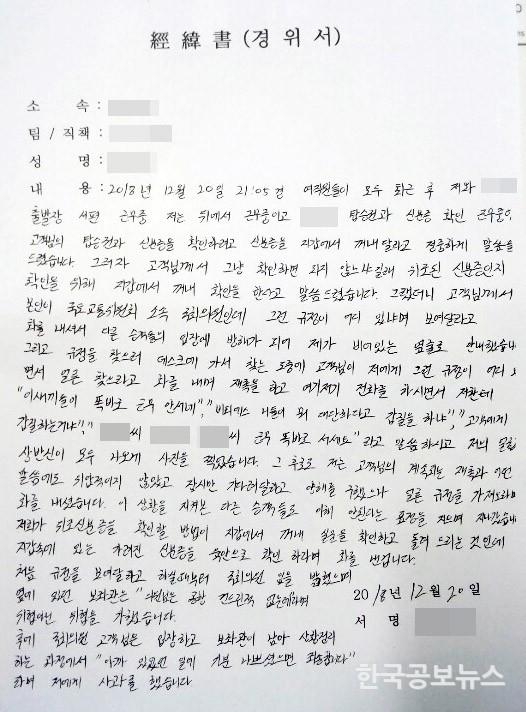 經 緯 書 (경 위 서)
소 속 :
팀 / 직책 :
성 명 :
내 용 : 2018년 12월 20일 21:05경 여직원들이 모두 퇴근 후 저와
출발장 서편 근무중 저는 뒤에서 근무중이고 탑승권과 신분증 확인 근무중
고객님의 탑승권과 신분증을 확인하려고 신분증을 지갑에서 꺼내달라고 정중하게 말씀을
드렸습니다. 그러자 고객님께서 그냥 확인하면 되지 않느냐 위조된 신분증인지
확인을 위해 지갑에서 꺼내 확인을 한다고 말씀드렸습니다. 그랬더니 고객님께서
본인이 국토교통위원회 소속 국회의원인데 그런 규정이 어디 있냐며 보여달라고
화를 내셔서 다른 승객들의 입장에 방해가 되어 제가 비어있는 옆으로 안내했습니
그리고 규정을 찾으러 데스크에 가서 찾는 도중에 고객님이 저에게 그런 규정이 어디
면서 얼른 찾으라고 화를 내며 재촉을 하고 여기저기 전화를 하시면서 저한테
"이새끼들이 똑바로 근무 안서네", "비티에스 니들이 뭐 대단하다고 갑질을 하냐", "고객에게
갑질하는거냐", " 씨 씨 근무 똑바로 서세요" 라고 말씀하시고 저의 얼굴
상반신이 모두 나오게 사진을 찍었습니다. 그 후로도 저는 고객님의 계속되는 재촉과
말씀에도 위압적이지 않았고 잠시만 기다려달라고 양해를 구했으나 얼른 규정을 가져오라며
화를 내셨습니다. 이 상황을 지켜본 다른 승객들도 이해 안된다는 표정을 지으며 지나갔습니
저희가 위조신분증을 확인할 방법이 지갑에서 꺼내 확인하고 돌려 드리는 것인데
지갑속에 있는 가려진 신분증을 육안으로 확인 하라며 화를 냅니다.
처음 규정을 보여달라고 하실때부터 국회의원 임을 밝혔으며
옆에 있던 보좌관은 의원님은 공항 건드린적 없는데
위협아닌 위협을 가하셨습니다.
2018년 12월 20일
서 명
후에 국회의원 고객님은 입장하고 보좌관이 남아 상황정리
하는 과정에서 "아까 있었던 일에 기분 나쁘셨으면 죄송합니다"
하며 저에게 사과를 했습니다
한국공보뉴스